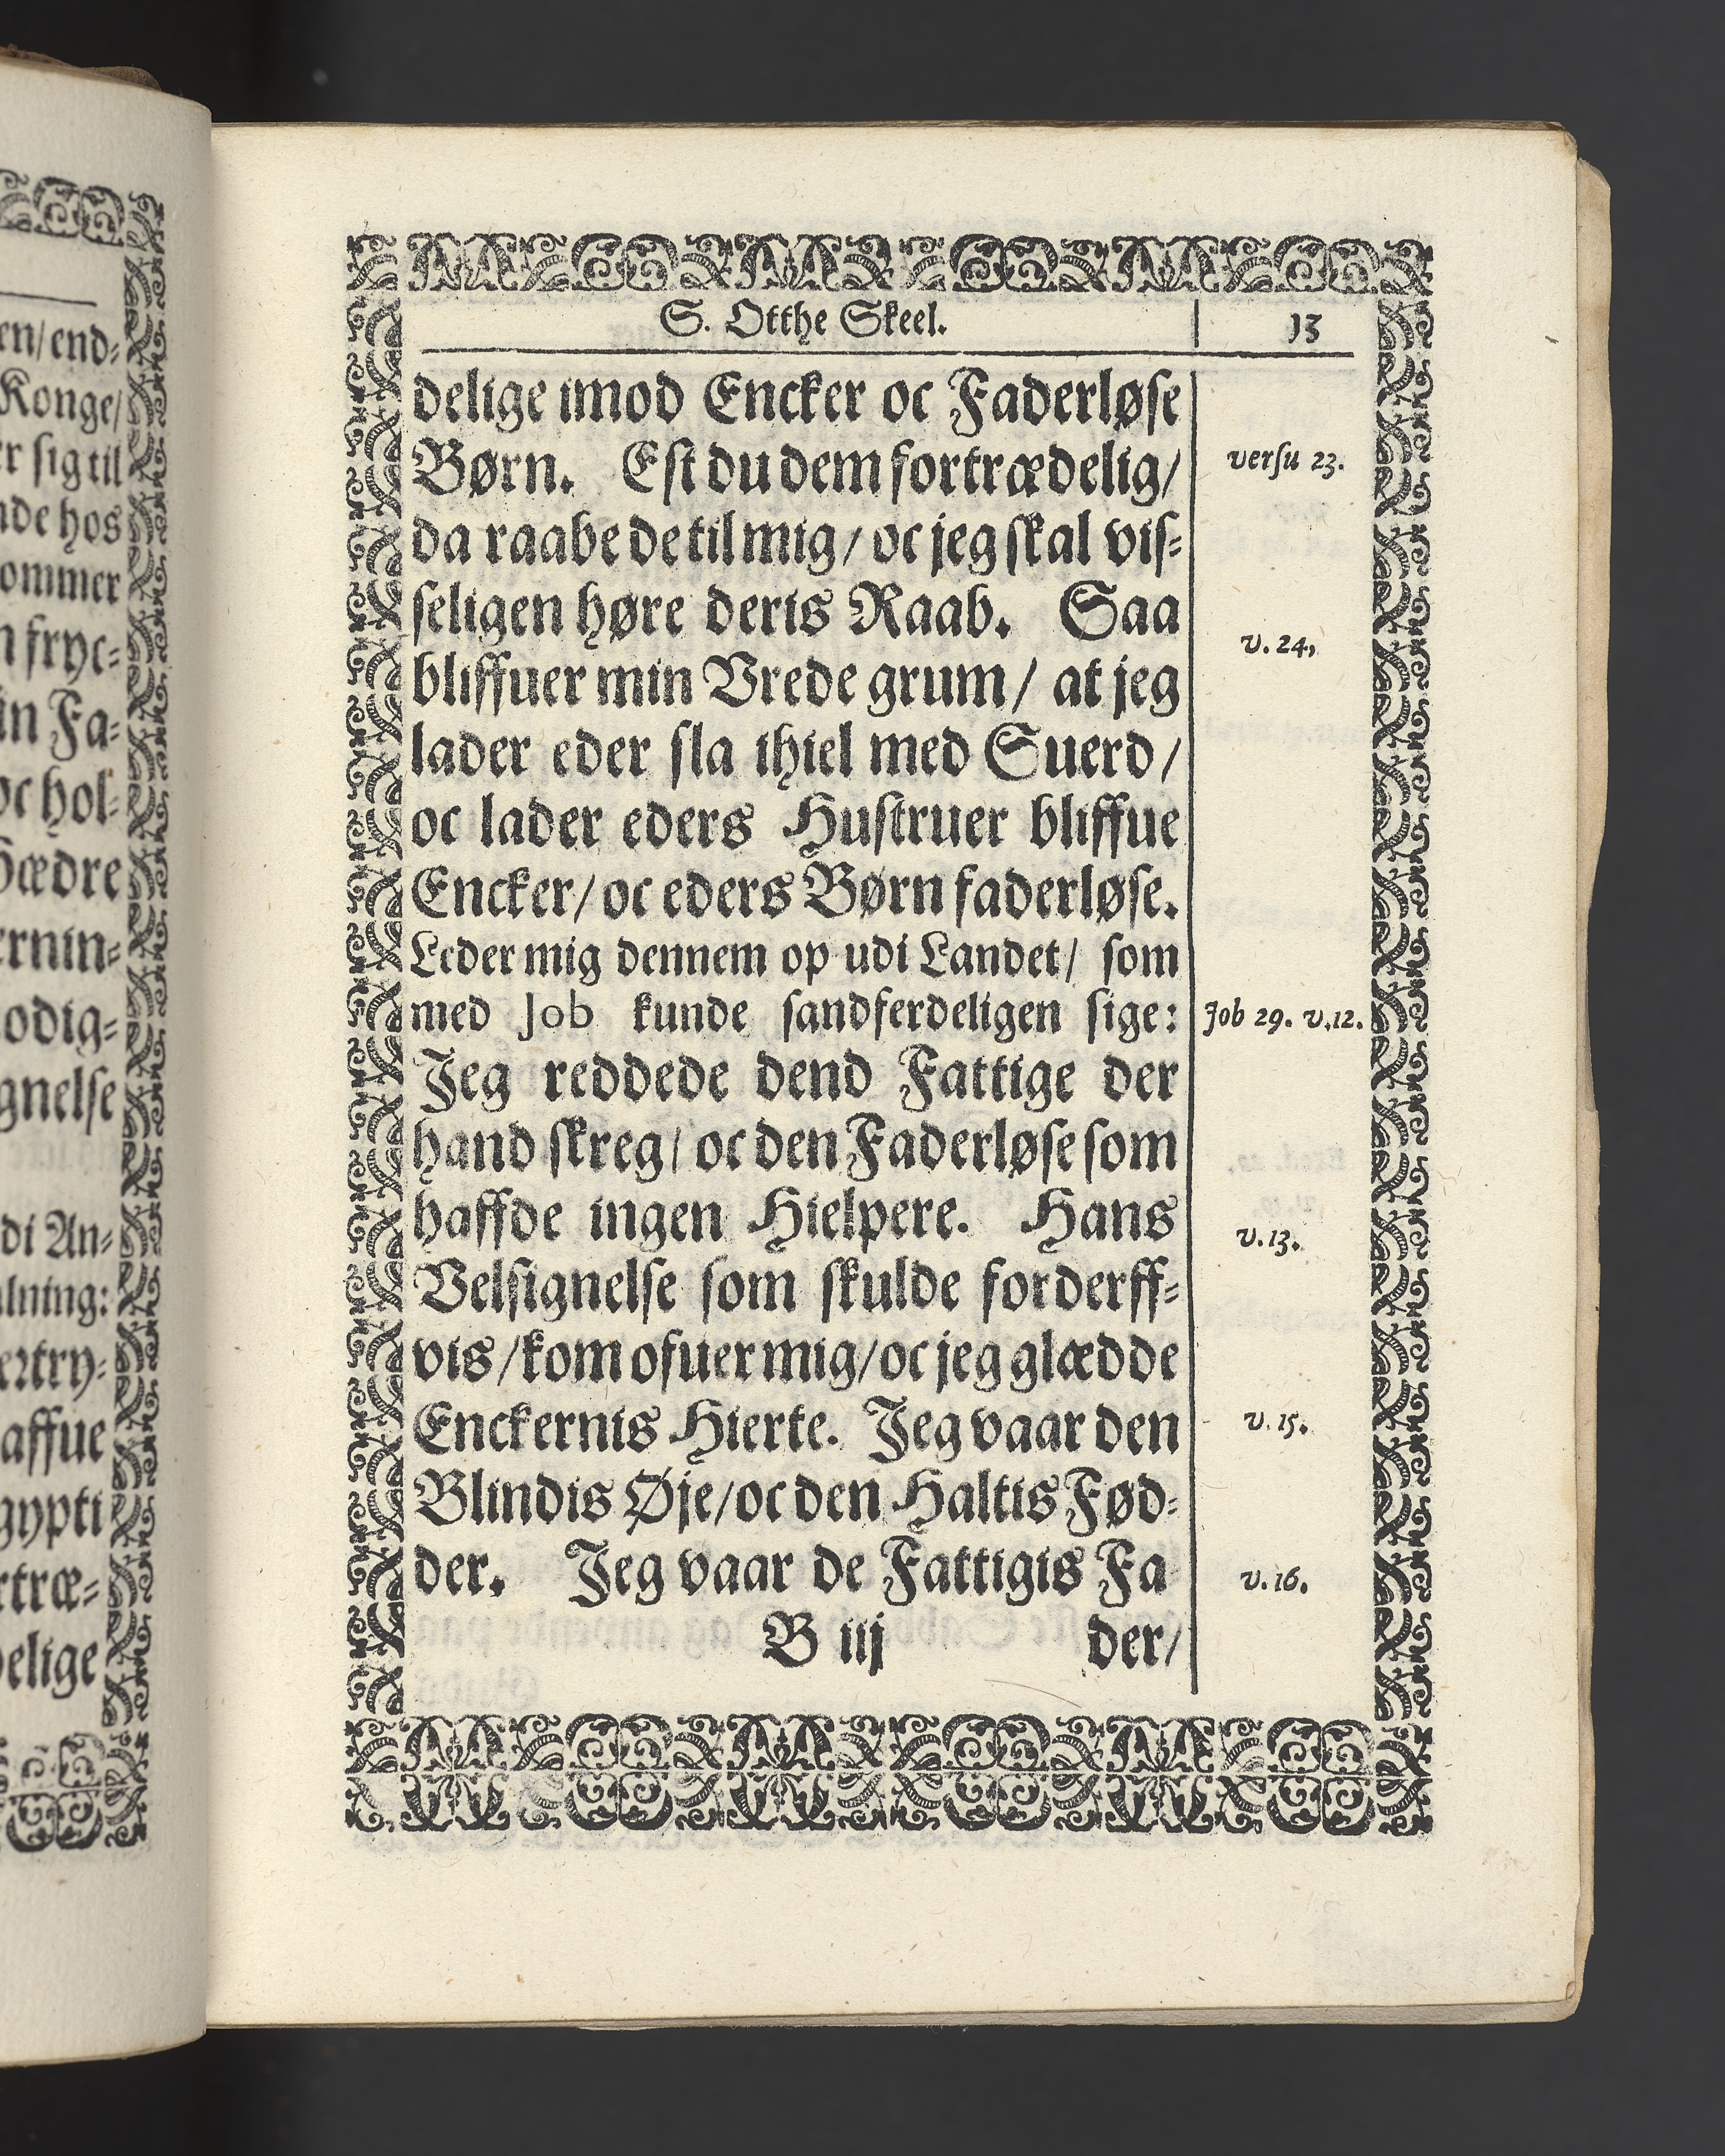 en/end-
Konge/
er sig til
nde hos
ommer
n fryc-
in Fa-
oc hol-
Hædre
ernin-
odig-
gnelse
di An-
alning:
ertry-
affue
gypti
rtræ-
delige
S. Otthe Skeel. 13
delige imod Encker oc Faderløse
Børn. Est du dem fortrædelig/ versu 23.
da raabe de til mig/ oc jeg skal vis-
seligen høre deris Raab. Saa v. 24,
bliffuer min Vrede grum/ at jeg
lader eder sla ihiel med Suerd/
oc lader eders Hustruer bliffue
Encker/ oc eders Børn faderløse.
Leder mig dennem op udi Landet/ som
med Job kunde sandferdeligen sige: Job 29. v.12.
Jeg reddede dend Fattige der
hand skreg/ oc den Faderløse som
haffde ingen Hielpere. Hans v.13.
Velsignelse som skulde forderff-
vis/kom ofuer mig/oc jeg glædde
Enckernis Hierte. Jeg vaar den v. 15.
Blindis Øje/oc den Haltis Fød-
der. Jeg vaar de Fattigis Fa v. 16.
B iij der/